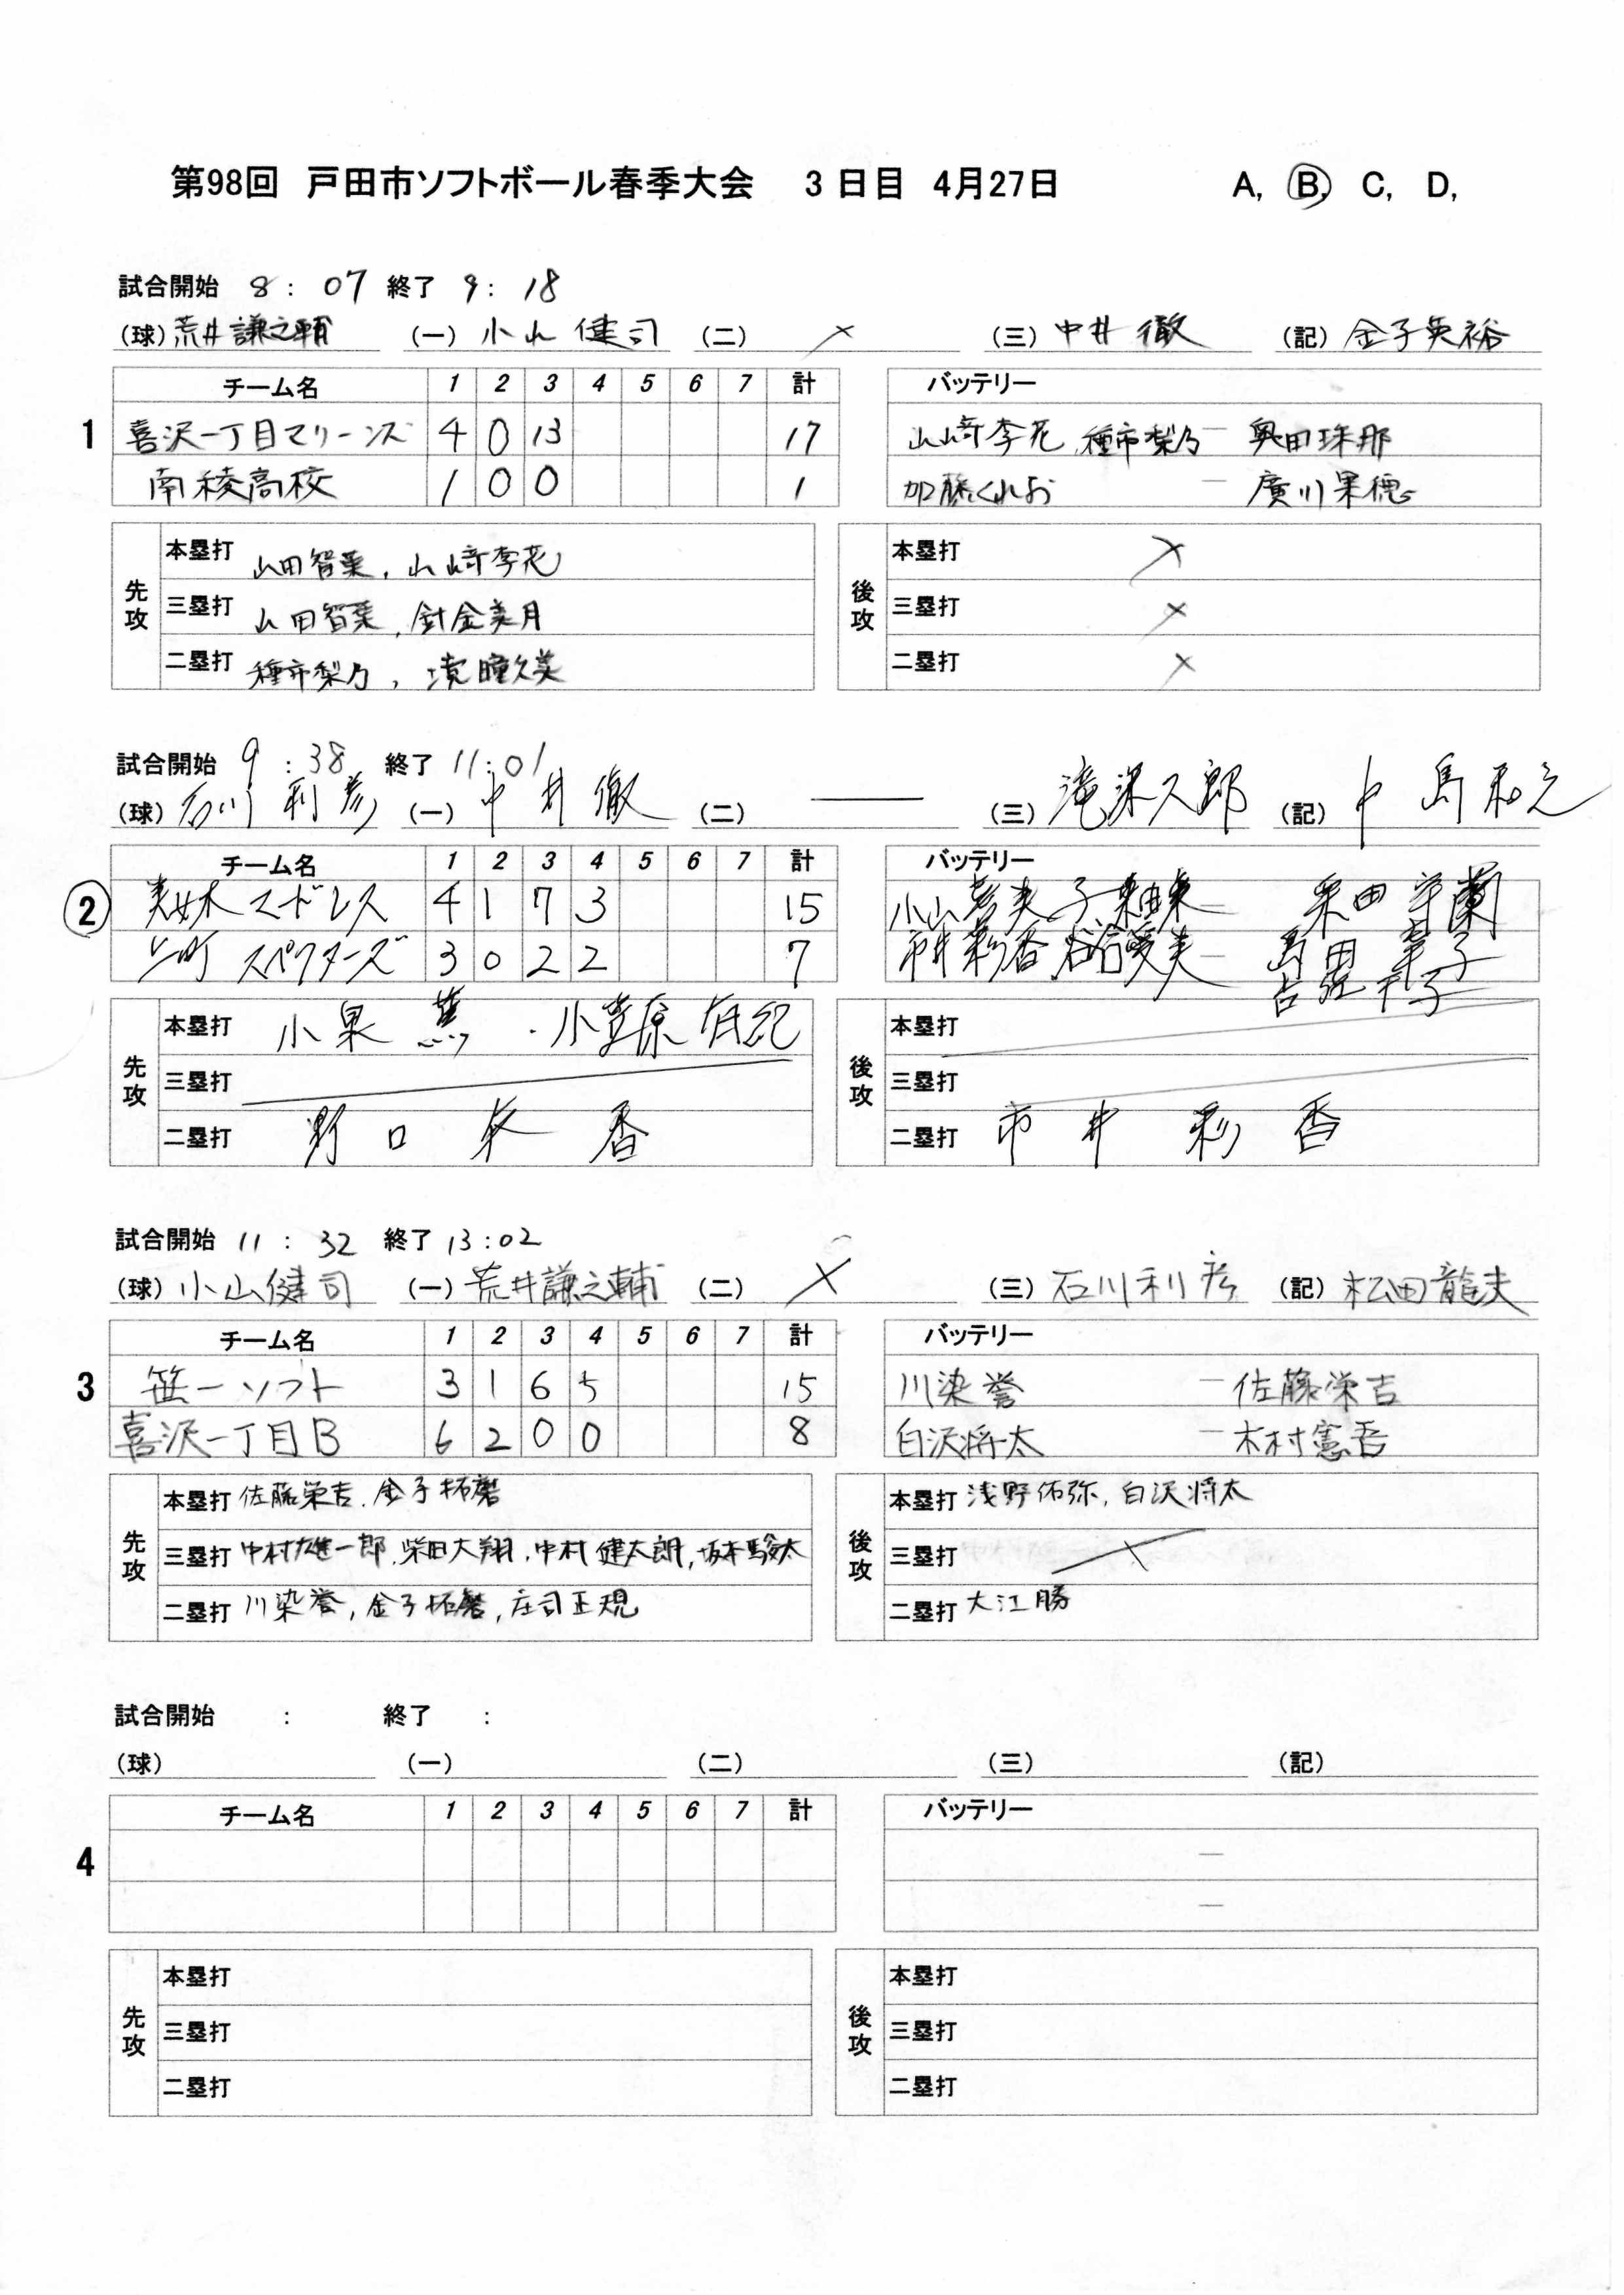 第98回 戸田市ソフトボール春季大会 3日目 4月27日 A, B, C, D,
試合開始 8:07 終了 9:18
(球)荒井謙之輔 (一)小山健司 (二)× (三)中井徹 (記)金子英裕
チーム名 1 2 3 4 5 6 7 計 バッテリー
1 喜沢一丁目マリーンズ 4 0 13 17 山﨑李花,種市梨乃 - 奥田珠那
南稜高校 1 0 0 1 加藤くれお - 廣川果穂
先攻 本塁打 山田智葉,山﨑李花 後攻 本塁打 ×
三塁打 山田智葉,針金美月 三塁打 ×
二塁打 種市梨乃, 二塁打 ×
試合開始 9:38 終了 11:01
(球)石川利彦 (一)中井徹 (二)― (三)滝沢久郎 (記)中島和之
チーム名 1 2 3 4 5 6 7 計 バッテリー
2 美女木マドレス 4 1 7 3 15
スペクターズ 3 0 2 2 7 市井彩香 - 島田幸子
先攻 本塁打 小泉薫・小笠原有紀 後攻 本塁打
三塁打 三塁打
二塁打 野口 香 二塁打 市井彩香
試合開始 11:32 終了 13:02
(球)小山健司 (一)荒井謙之輔 (二)× (三)石川利彦 (記)松田龍夫
チーム名 1 2 3 4 5 6 7 計 バッテリー
3 笹一ソフト 3 1 6 5 15 川染誉 - 佐藤栄吉
喜沢一丁目B 6 2 0 0 8 白沢将太 - 木村憲吾
先攻 本塁打 佐藤栄吉,金子拓磨 後攻 本塁打 浅野佑弥,白沢将太
三塁打 中村雄一郎,柴田大翔,中村健太朗,坂本駿太 三塁打 ×
二塁打 川染誉,金子拓磨,庄司正規 二塁打 大江勝
試合開始 : 終了 :
(球) (一) (二) (三) (記)
チーム名 1 2 3 4 5 6 7 計 バッテリー
4 -
-
先攻 本塁打 後攻 本塁打
三塁打 三塁打
二塁打 二塁打